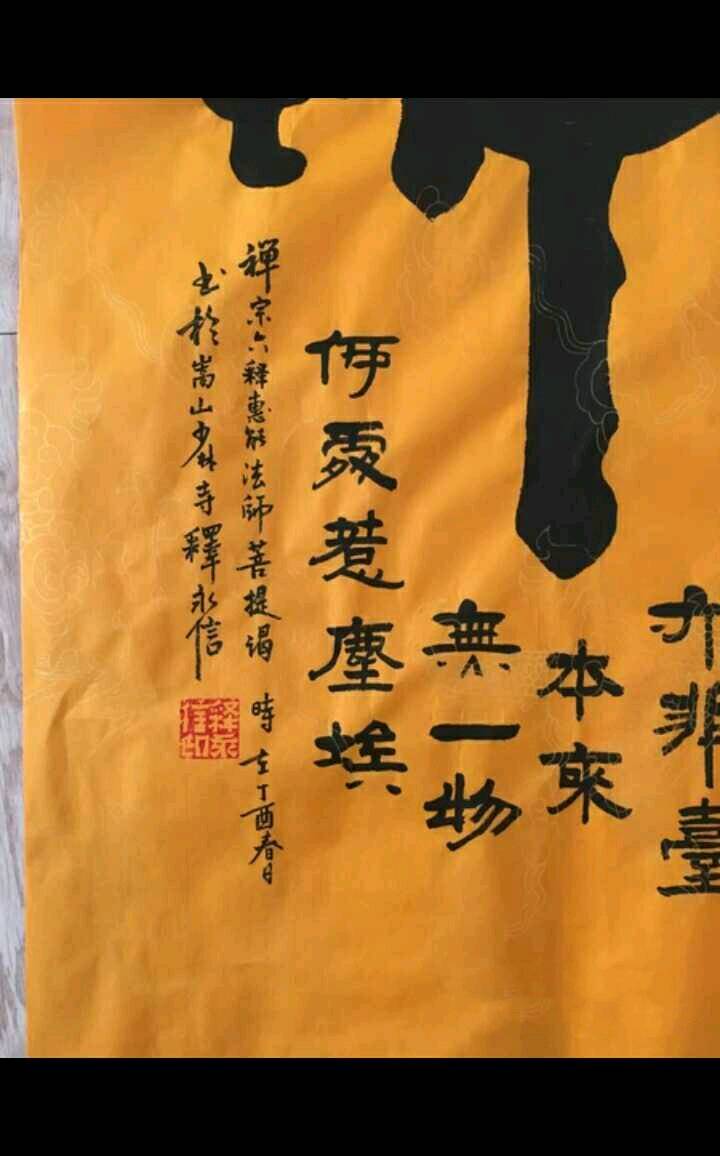 亦非臺
本來
無一物
何處惹塵埃
禅宗六释惠能法師菩提谒 時在丁酉春日
书於嵩山少林寺釋永信
释永信印